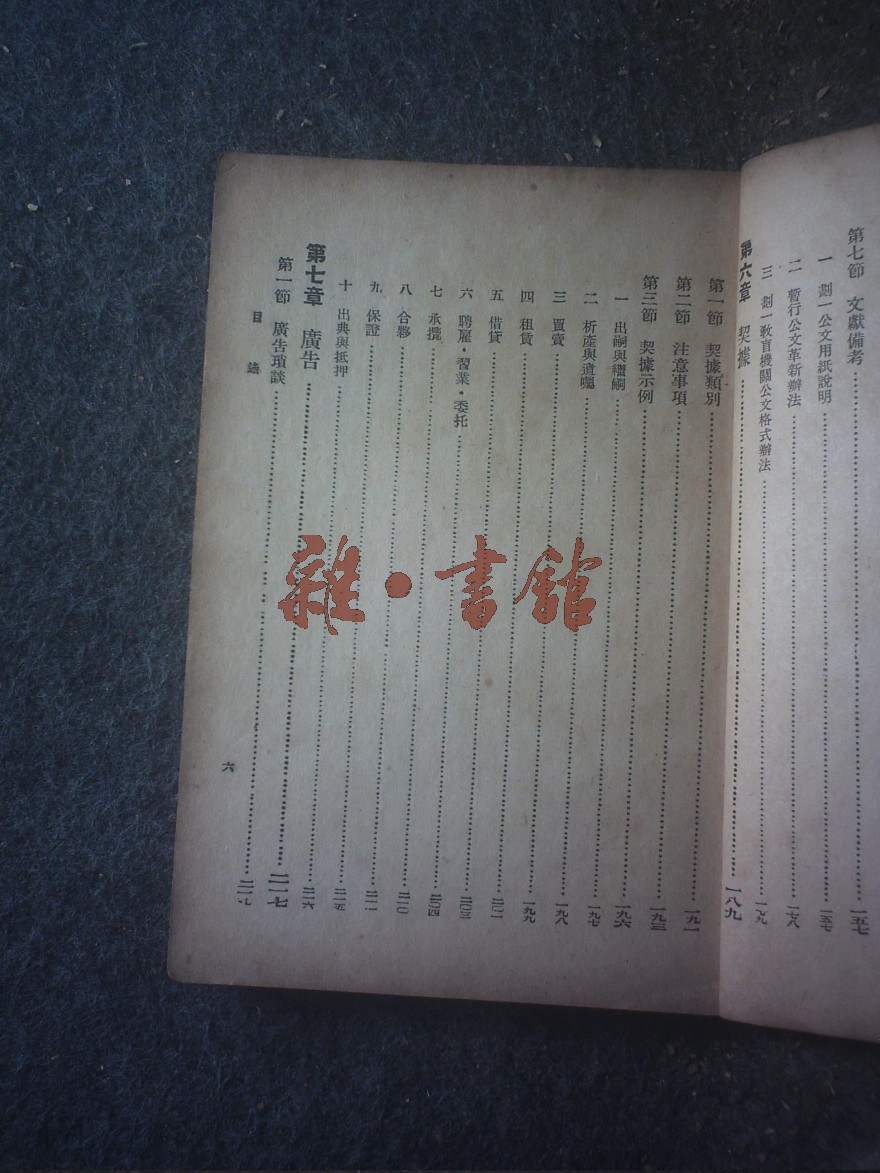 第七節 文獻備考……一五七
一 劃一公文用紙說明……一五七
二 暫行公文革新辦法……一七八
三 劃一教育機關公文格式辦法……一七九
第六章 契據……一八九
第一節 契據類別……一九一
第二節 注意事項……一九三
第三節 契據示例……一九六
一 出嗣與繼嗣……一九六
二 析產與遺囑……一九七
三 買賣……一九八
四 租賃……一九九
五 借貸……二〇一
六 聘雇・習業・委托……二〇三
七 承攬……二〇四
八 合夥……二一〇
九 保證……二一一
十 出典與抵押……二一五
第七章 廣告……二一七
第一節 廣告瑣談
目錄
六
雜・書館